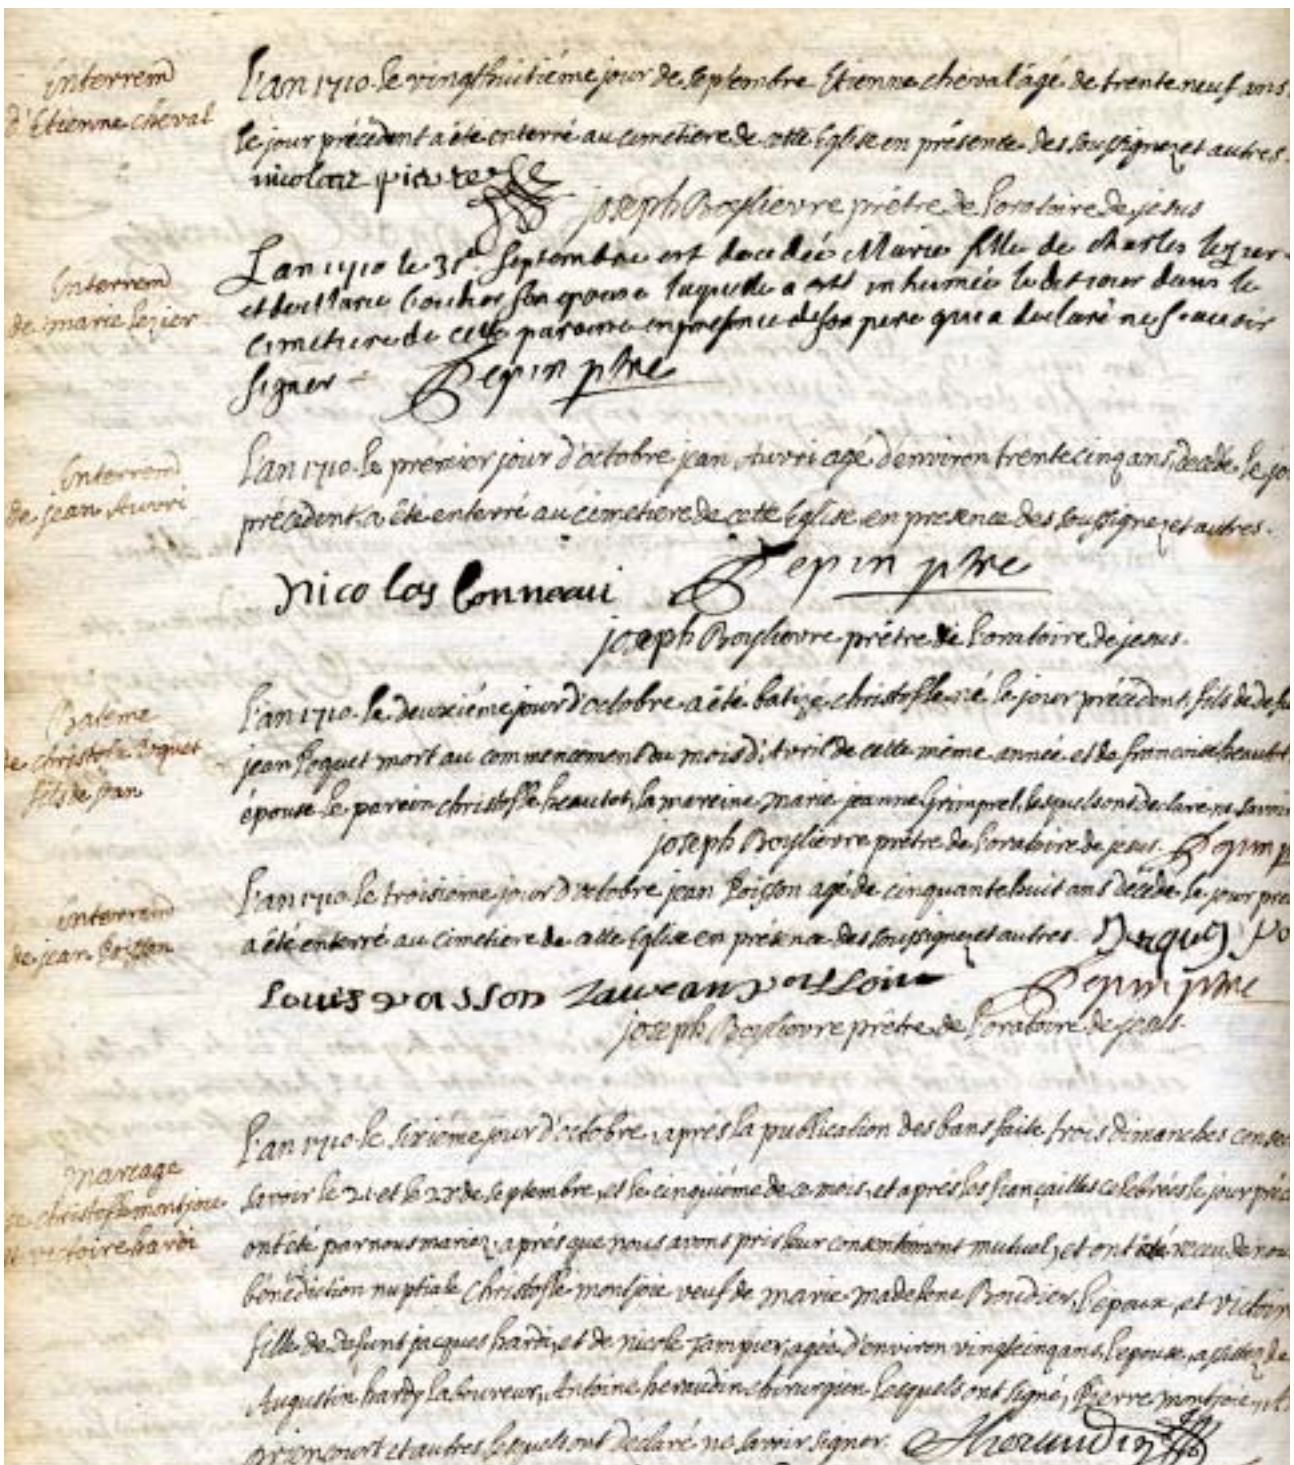 interrem
d'Etienne cheval
L'an 1710. le vingthuitiéme jour de septembre Etienne cheval âgé de trente neuf ans
le jour précédent a été enterré au cimetiere de cette Eglise en présence des soussignez et autres.
nicolas
joseph Boyslievre prêtre de l'oratoire de jesus
interrem
de marie lezier
L'an 1710 le septembre est decedée Marie fille de charles lezier
et de Marie son epouse laquelle a esté inhumée ledit jour dans le
cimetiere de cette paroisse en presence de son pere qui a declaré ne scavoir
signer
pepin pbre
interrem
de jean Auvri
L'an 1710. le premier jour d'octobre jean Auvri agé d'environ trente cinq ans, decédé le jo
précédent, a été enterré au cimetiere de cette Eglise en presence des soussignez et autres.
Nicolas Conneau pepin pbre
joseph Boyslievre prêtre de l'oratoire de jesus.
Batême
de christofle Poquet
fils de jean
L'an 1710. le deuxiéme jour d'octobre a été batizé christofle né le jour précédent, fils de defu
jean Poquet mort au commencement du mois d'Avril de cette même année et de francoise heautot
épouse le parein christofle heautot, la mareine marie jeanne Grimprel, lesquels ont declaré ne savoir
joseph Boyslievre prêtre de l'oratoire de jesus. pepin p
interrem
de jean Poisson
L'an 1710 le troisiéme jour d'octobre jean Poisson agé de cinquante huit ans decédé le jour pre
a été enterré au cimetiere de cette Eglise en présence des soussignez et autres.
Louis poisson pepin pbre
joseph Boyslievre prêtre de l'oratoire de jesus.
mariage
de christofle montjoie
et victoire hardi
L'an 1710 le sixiéme jour d'octobre, aprés la publication des bans faite trois dimanches conse
savoir le 21 et le 28 de septembre, et le cinquiéme de ce mois, et aprés les fiançailles celebrées le jour préc
ont été par nous mariez, aprés que nous avons pris leur consentement mutuel, et ont receu de nou
bénédiction nuptiale christofle montjoie veuf de marie madelene Boudier, l'epoux, et victoire
fille de defunt jacques hardi, et de nicole Tampier, agée d'environ vingtcinq ans, l'epouse, assistez de
Augustin hardy laboureur, Antoine heraudin chirurgien lesquels ont signé, Pierre montjoie,
et autres lesquels ont declaré ne savoir signer. Aheraudin